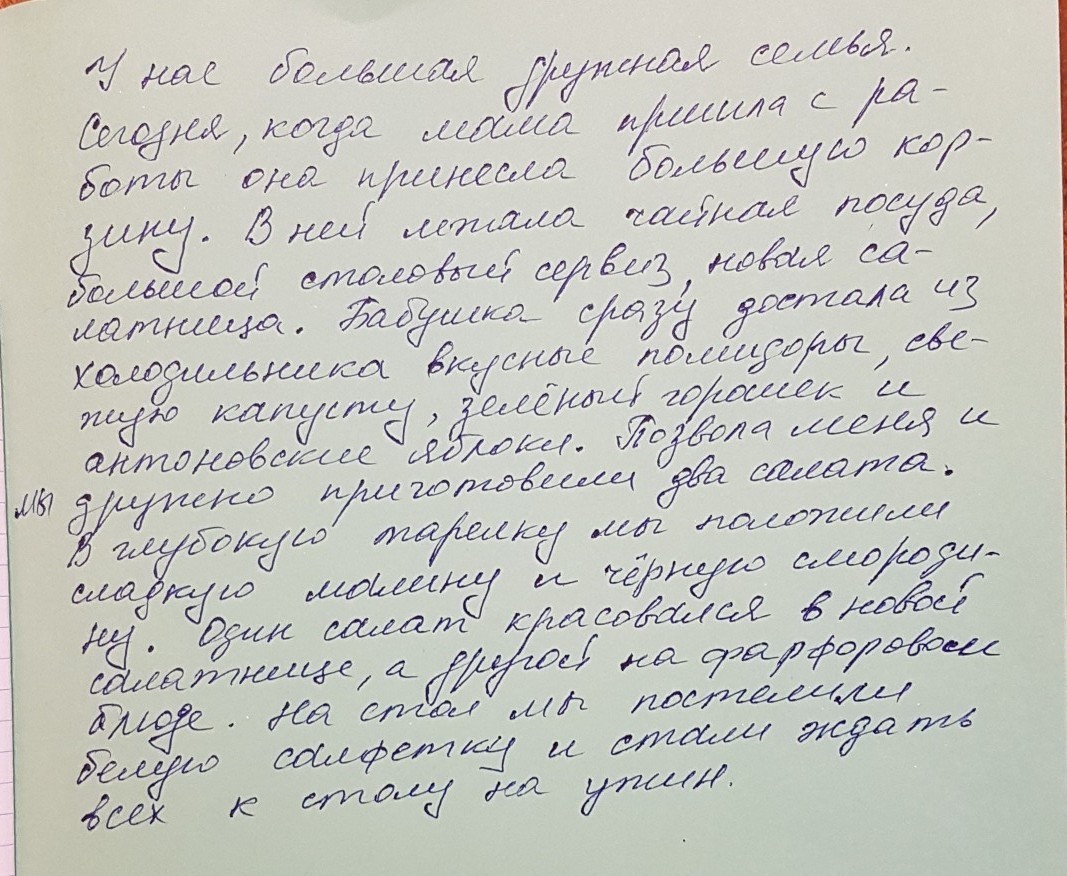 У нас большая дружная семья.
Сегодня, когда мама пришла с ра-
боты она принесла большую кор-
зину. В ней лежала чайная посуда,
большой столовый сервиз, новая са-
латница. Бабушка сразу достала из
холодильника вкусные помидоры, све-
жую капусту, зелёный горошек и
антоновские яблоки. Позвала меня и
мы дружно приготовили два салата.
В глубокую тарелку мы положили
сладкую малину и чёрную смороди-
ну. Один салат красовался в новой
салатнице, а другой на фарфоровом
блюде. На стол мы постелили
белую салфетку и стали ждать
всех к столу на ужин.